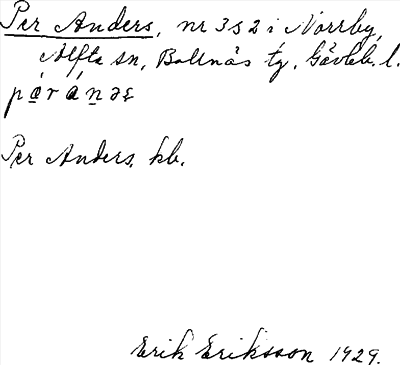 Per Anders, nr 3 o 2 i Norrby,
Alfta sn, Bollnäs tg, Gävleb. l.
Per Anders. kb.
Erik Eriksson 1929.